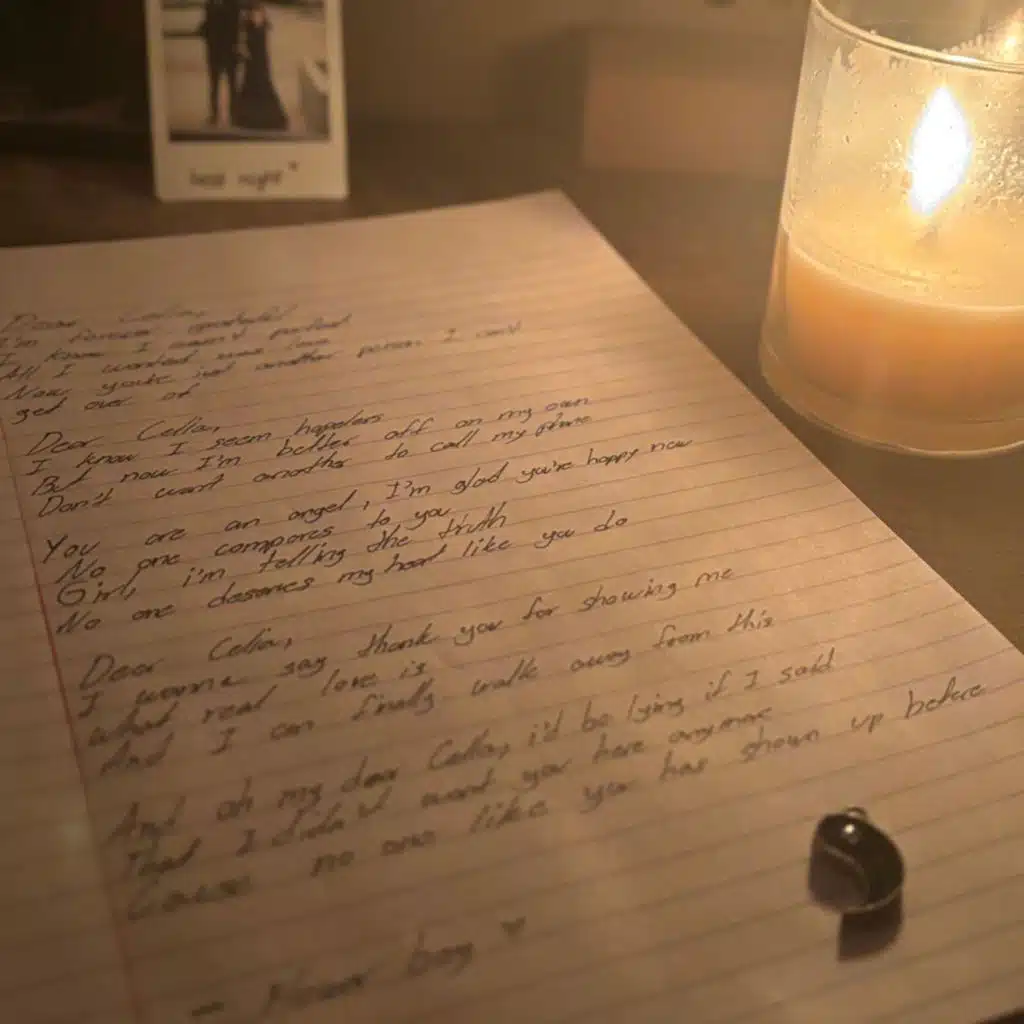 best night
Dear Cella,
I'm forever grateful
I know I wasn't perfect
All I wanted was love
Now you're just another person I can't
get over of
Dear Cella,
I know I seem hopeless
But now I'm better off on my own
Don't want another to call my phone
You are an angel, I'm glad you're happy now
No one compares to you
Girl, i'm telling the truth
No one deserves my heart like you do
Dear Cella,
I wanna say thank you for showing me
what real love is
And I can finally walk away from this
And oh my dear Cella, i'd be lying if I said
That I didn't want you here anymore
Cause no one like you has shown up before
boy ♥